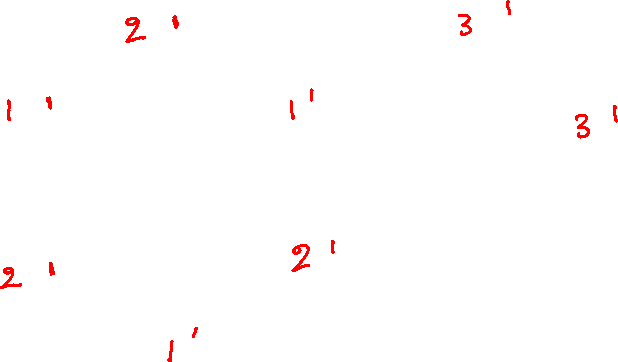 2' 3'
1' 1' 3'
2' 2'
1'